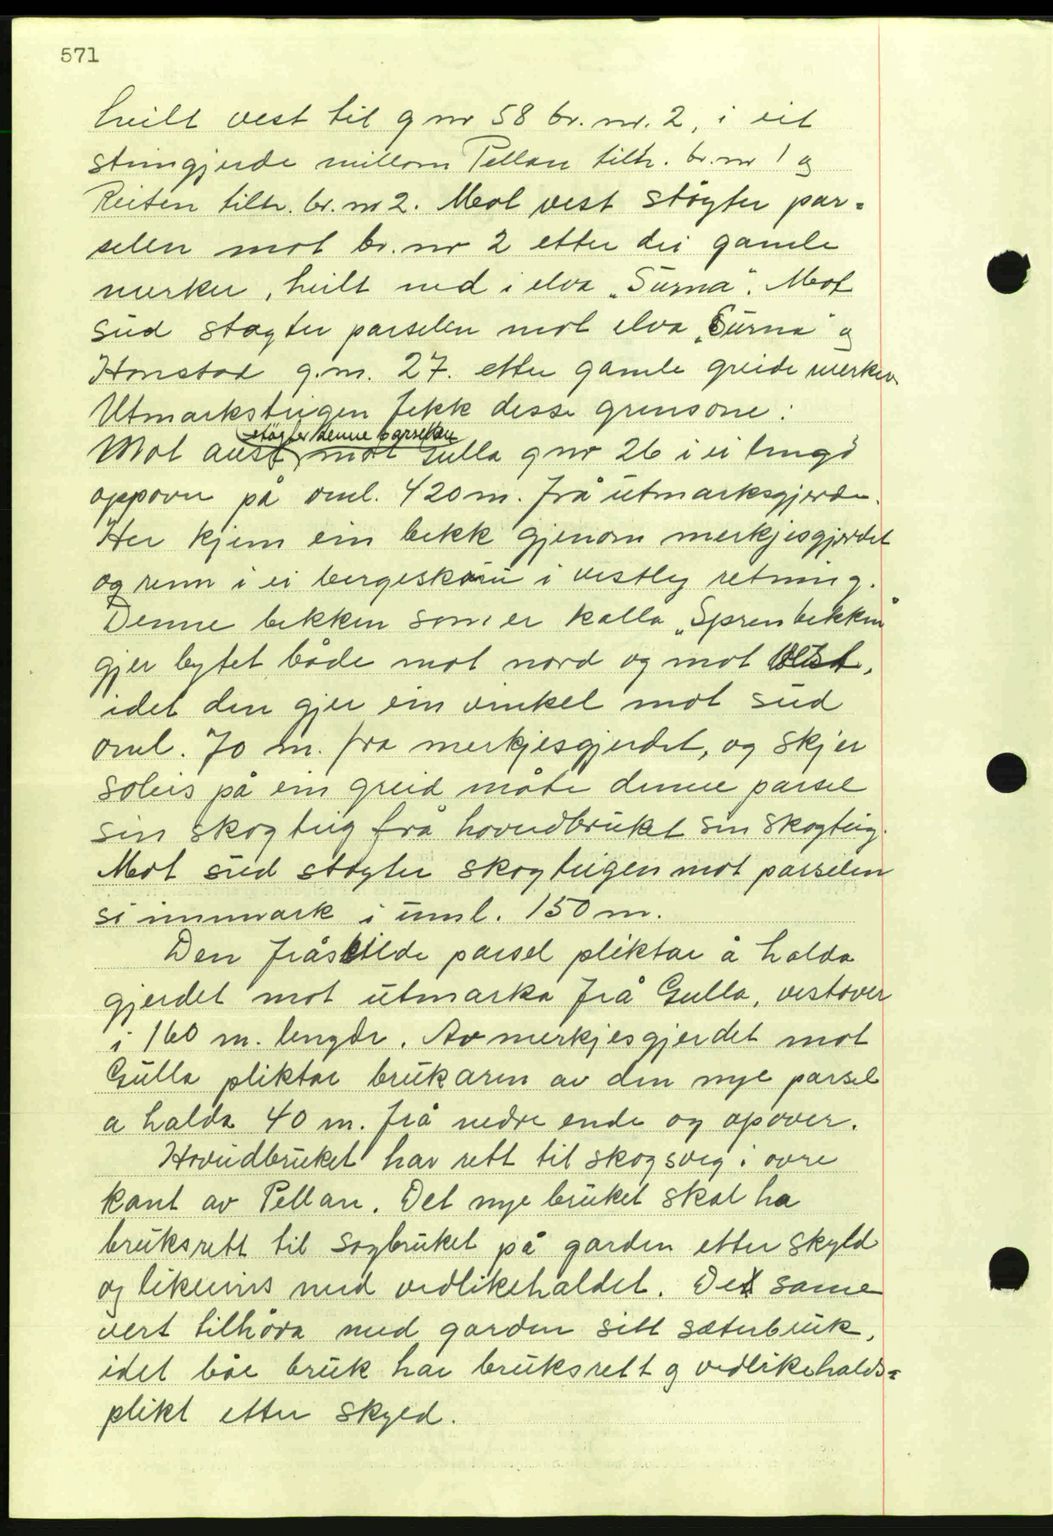 571
heilt vest til g nr 58 br. nr. 2, i eit
steingjerde millom Pellan tilh. br. nr 1 og
Reiten tilh. br. nr 2. Mot vest støyter par=
selen mot br. nr 2 etter dei gamle
merker, heilt ned i elva „Surna". Mot
sud støyter parselen mot elva „Surna" og
Honstad g.nr. 27. etter gamle greide merker
Utmarksteigen fekk desse grensone:
støyter denne parsellen
Mot aust mot Gulla g nr 26 i ei lengd
oppover på oml. 420 m. frå utmarksgjerde.
Her kjem ein bekk gjenom merkjesgjerdet
og renn i ei bergeskøru i vestleg retning.
Denne bekken som er kalla „Sprenbekken"
gjer bytet både mot nord og mot vest,
idet den gjer ein vinkel mot sud
oml. 70 m. fra merkjesgjerdet, og skjer
soleis på ein greid måte denne parsel
sin skogteig frå hovudbruket sin skogteig.
Mot sud støyter skogteigen mot parselen
si innmark i uml. 150 m.
Den fråskilde parsel pliktar å halda
gjerdet mot utmarka frå Gulla, vestover
i 160 m. lengde. Av merkjesgjerdet mot
Gulla pliktar brukaren av den nye parsel
a halda 40 m. frå nedre ende og opover.
Hovudbruket har rett til skogsveg i øvre
kant av Pellan. Det nye bruket skal ha
bruksrett til sagbruket på garden etter skyld
og likeeins med vedlikehaldet. Det same
vert tilhøva med garden sitt sæterbruk,
idet båe bruk har bruksrett og vedlikehalds=
plikt etter skyld.